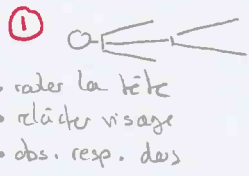 1
• rouler la tête
• relâcher visage
• obs. resp. dans